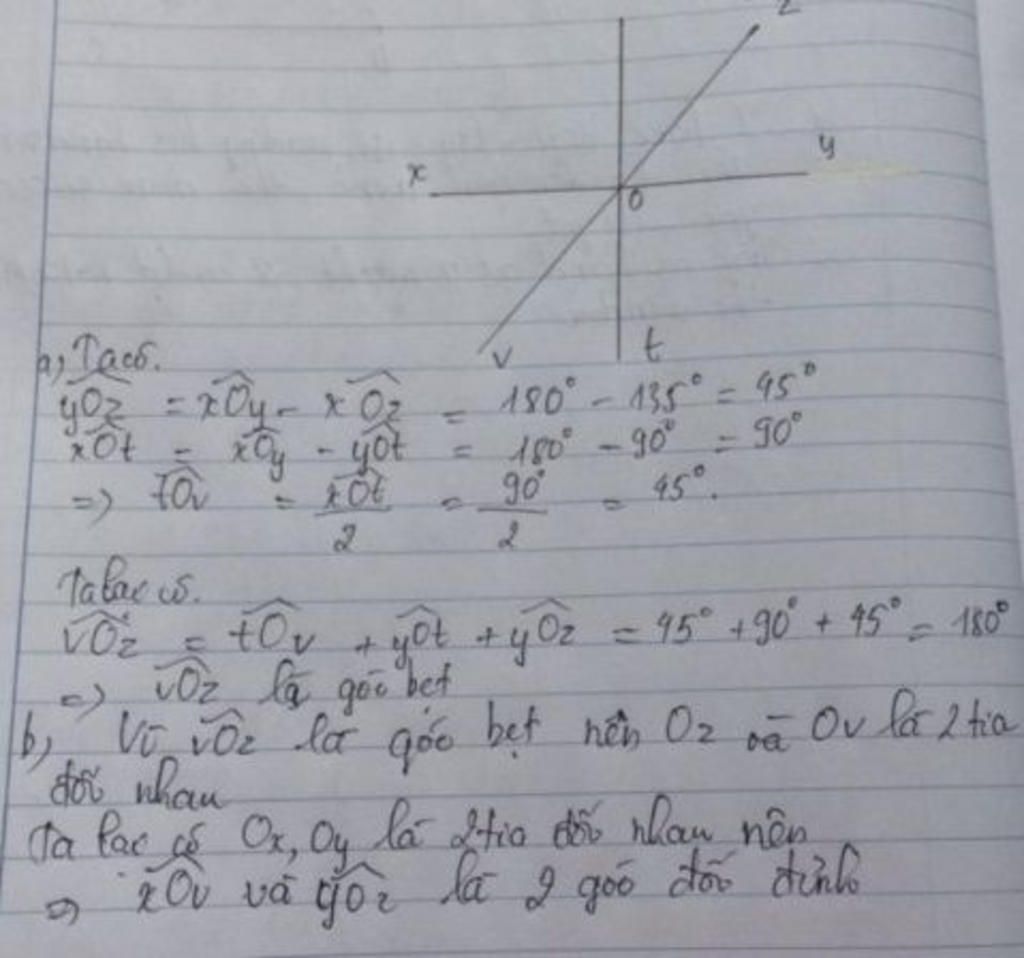 z
y
x
O
v
t
a, Ta có.
yOz = xOy - xOz = 180° - 135° = 45°
xOt = xOy - yOt = 180° - 90° = 90°
=> tOv = xOt/2 = 90°/2 = 45°.
Ta lại có.
vOz = tOv + yOt + yOz = 45° + 90° + 45° = 180°
=> vOz là góc bẹt
b, Vì vOz là góc bẹt nên Oz và Ov là 2 tia
đối nhau
Ta lại có Ox, Oy là 2 tia đối nhau nên
=> xOv và yOz là 2 góc đối đỉnh